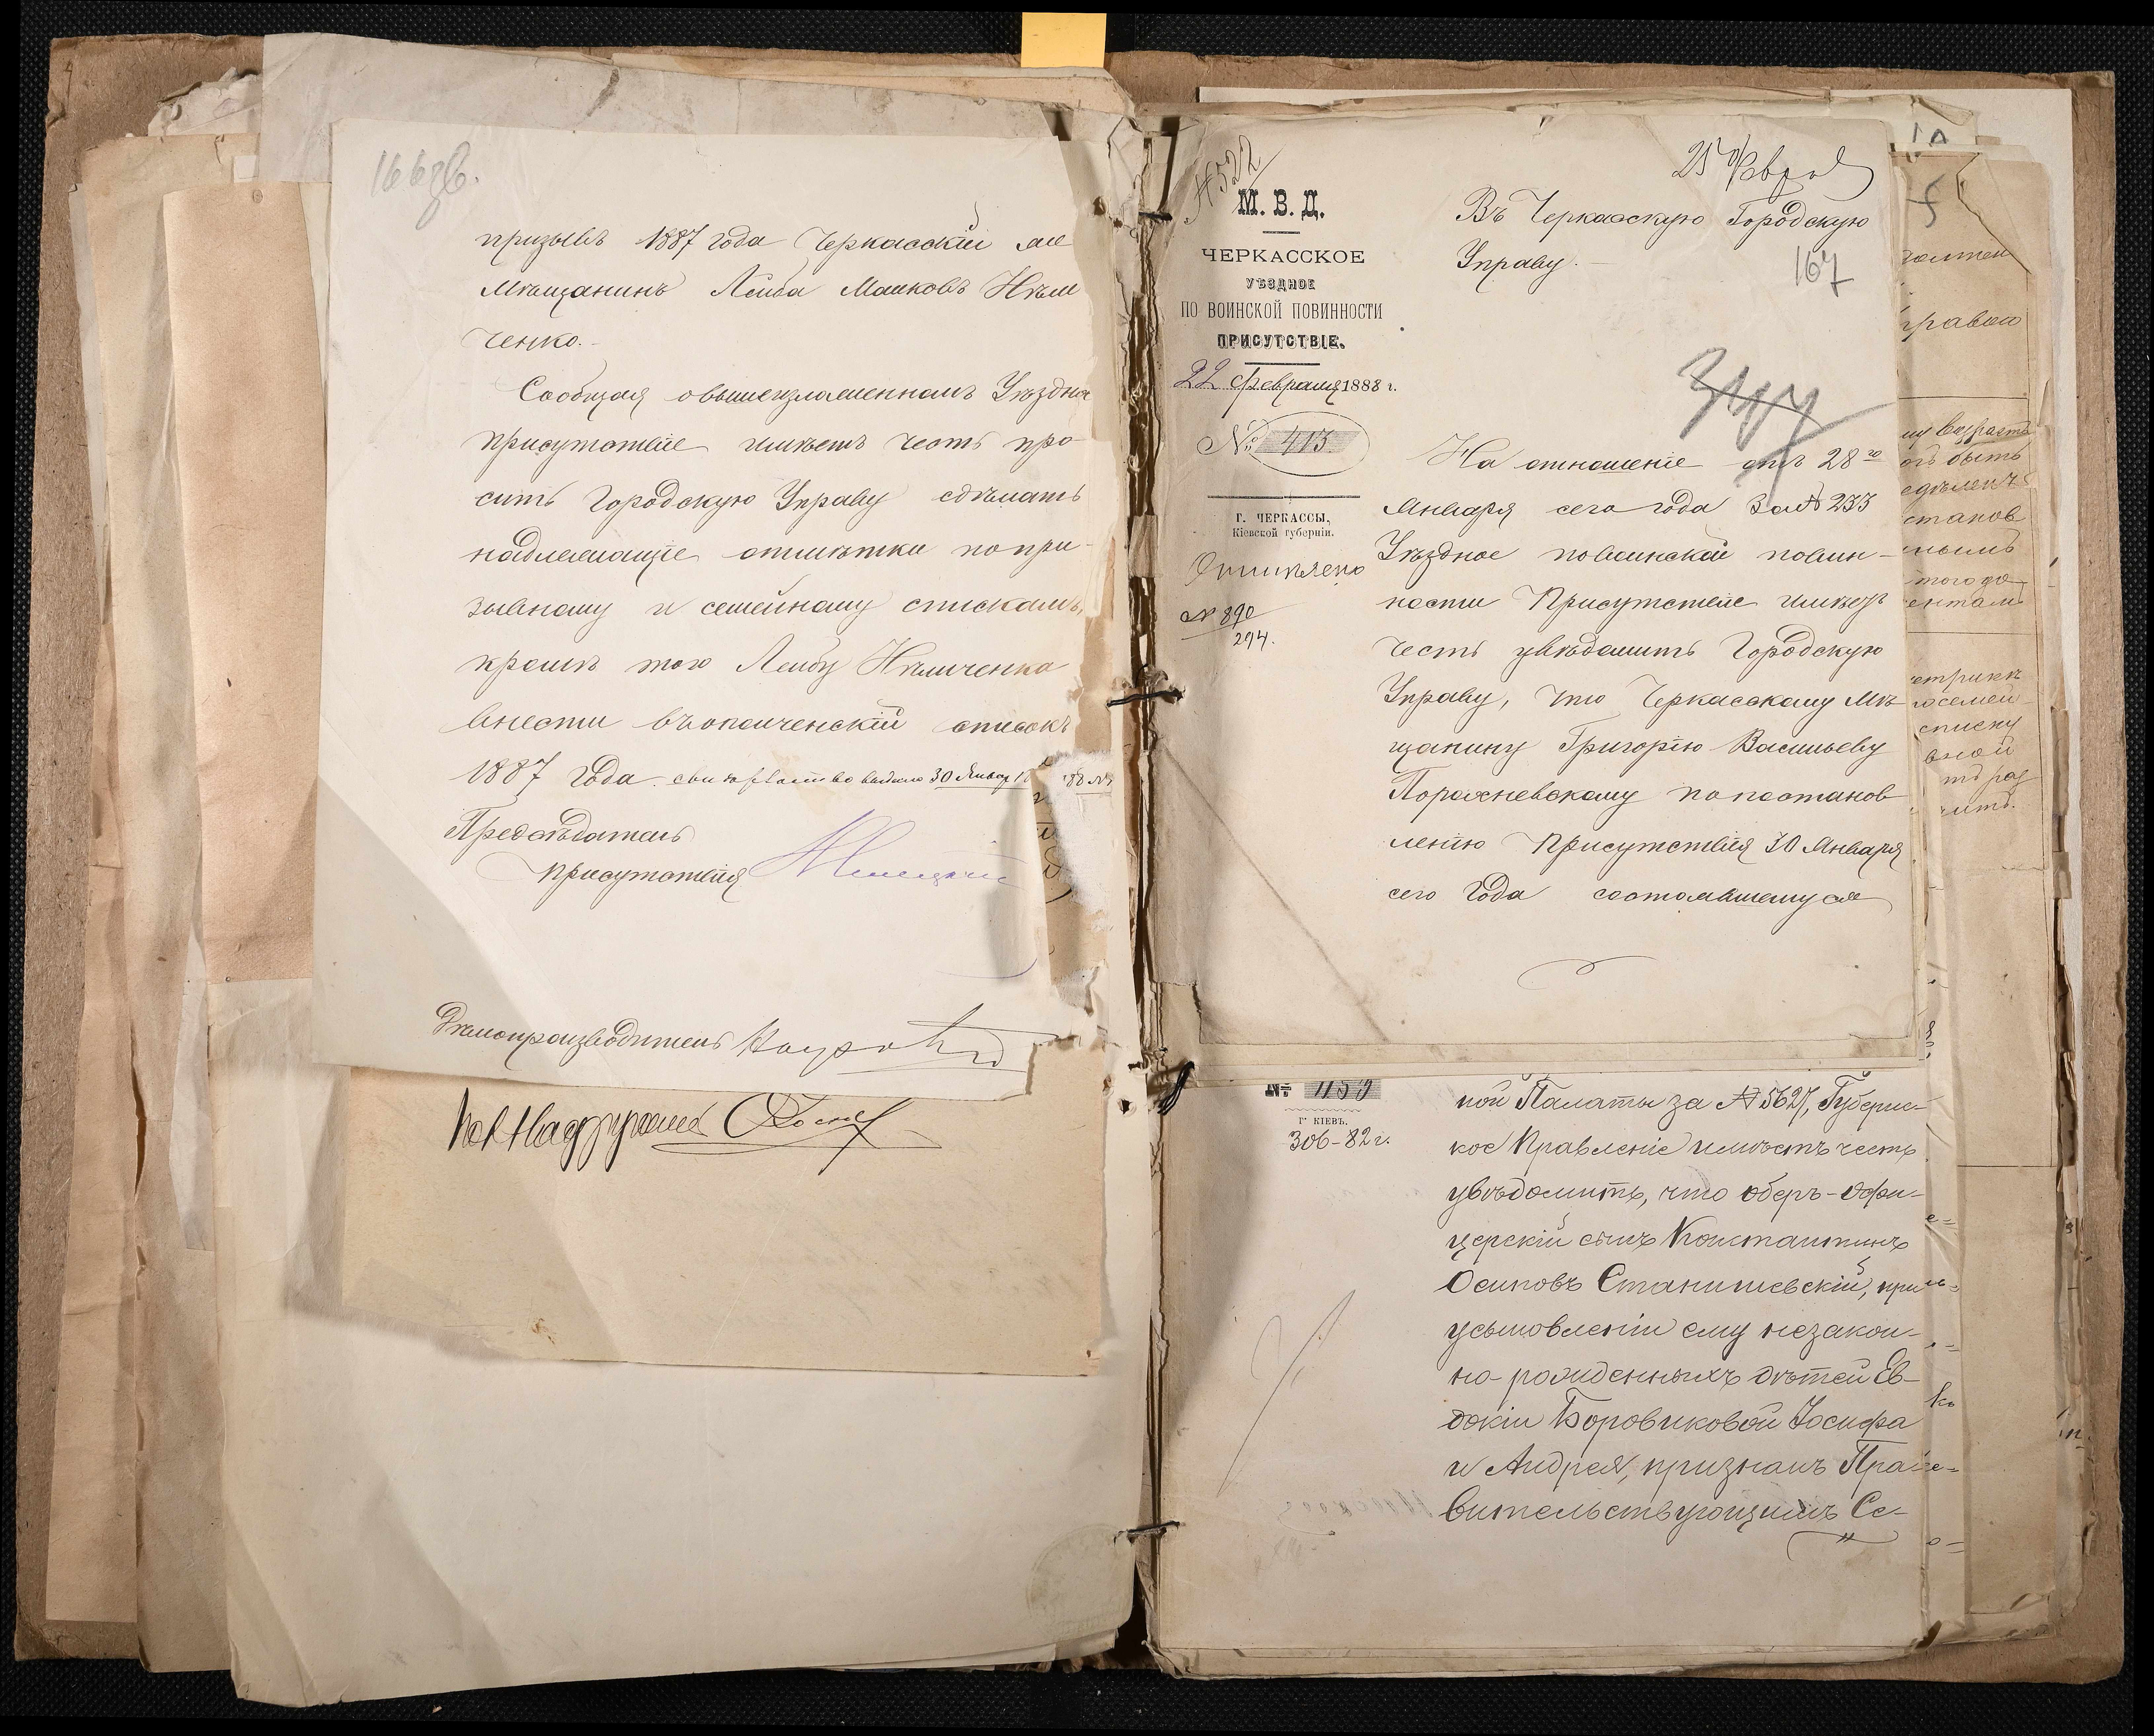 166 об.
призывѣ 1887 года Черкасскій
Мѣщанинъ Лейба Манковъ Нѣм
ченко.
Сообщая о вышеизложенномъ Уѣздное
присутствіе имѣетъ честь про-
сить Городскую Управу сдѣлать
надлежащіе отмѣтки по при-
зывному и семейному спискамъ,
кромѣ того Лейбу Нѣмченка
внести въ ополченскій списокъ
1887 года. свидѣтельство выдано 30 Января
Предсѣдатель
присутствія
Дѣлопроизводитель
25 Февраля
№ 522
М. В. Д.
ЧЕРКАССКОЕ
УѢЗДНОЕ
ПО ВОИНСКОЙ ПОВИННОСТИ
ПРИСУТСТВІЕ.
22 Февраля 1888 г.
№ 413
Г. ЧЕРКАССЫ,
Кіевской губерніи.
№ 890
294.
Въ Черкасскую Городскую
Управу.
167
На отношеніе отъ 28го
Января сего года за № 233
Уѣздное по воинской повин-
ности Присутствіе имѣетъ
честь увѣдомить Городскую
Управу, что Черкасскому Мѣ-
щанину Григорію Васильеву
Порохневскому по постанов
ленію Присутствія 30 Января
сего года состоявшемуся
№ 1150
Г. КІЕВЪ.
306-82 г.
ной Палаты за № 5627, Губернс-
кое Правленіе имѣетъ честь
увѣдомить, что оберъ-офи-
церскій сынъ Константинъ
Осиповъ Станишевскій, при
усыновленіи ему незакон-
но-рожденныхъ дѣтей Ев-
докіи Боровиковой Іосифа
и Андрея, признанъ Пра-
вительствующимъ Се-